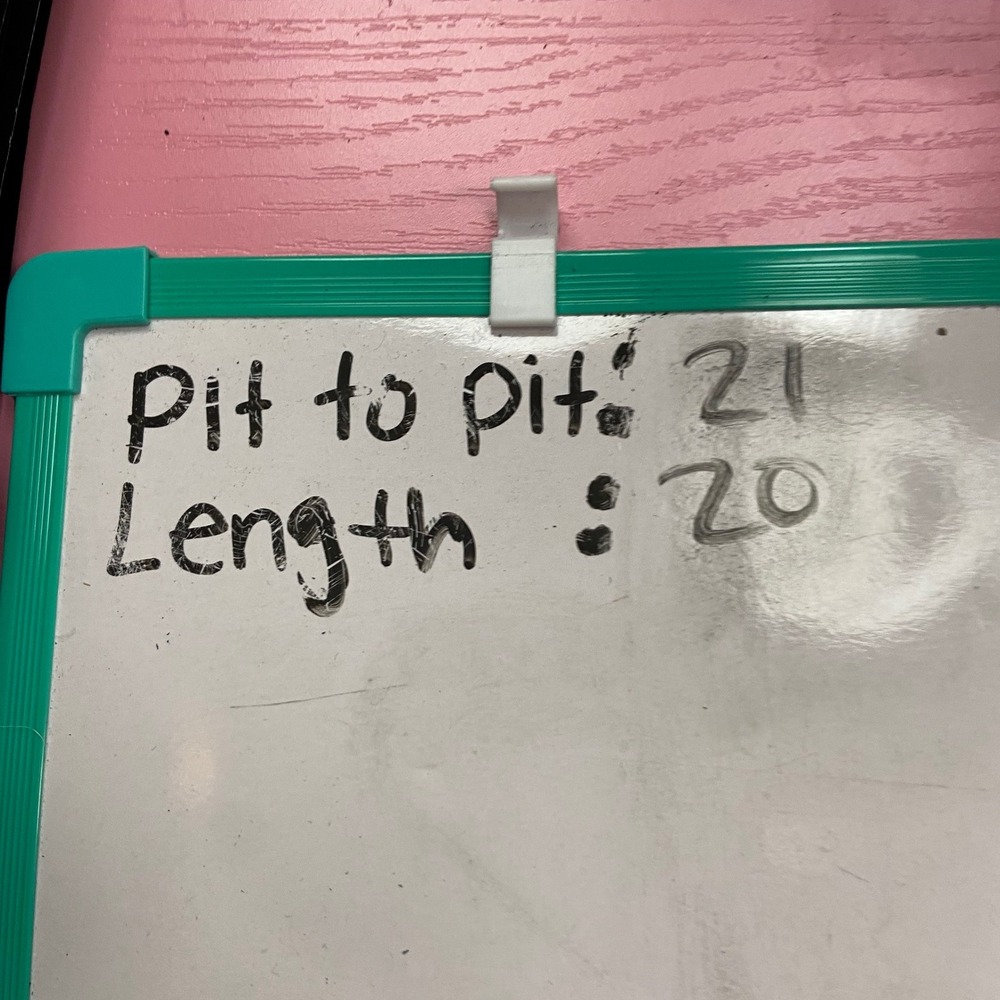 Pit to pit: 21
Length : 20